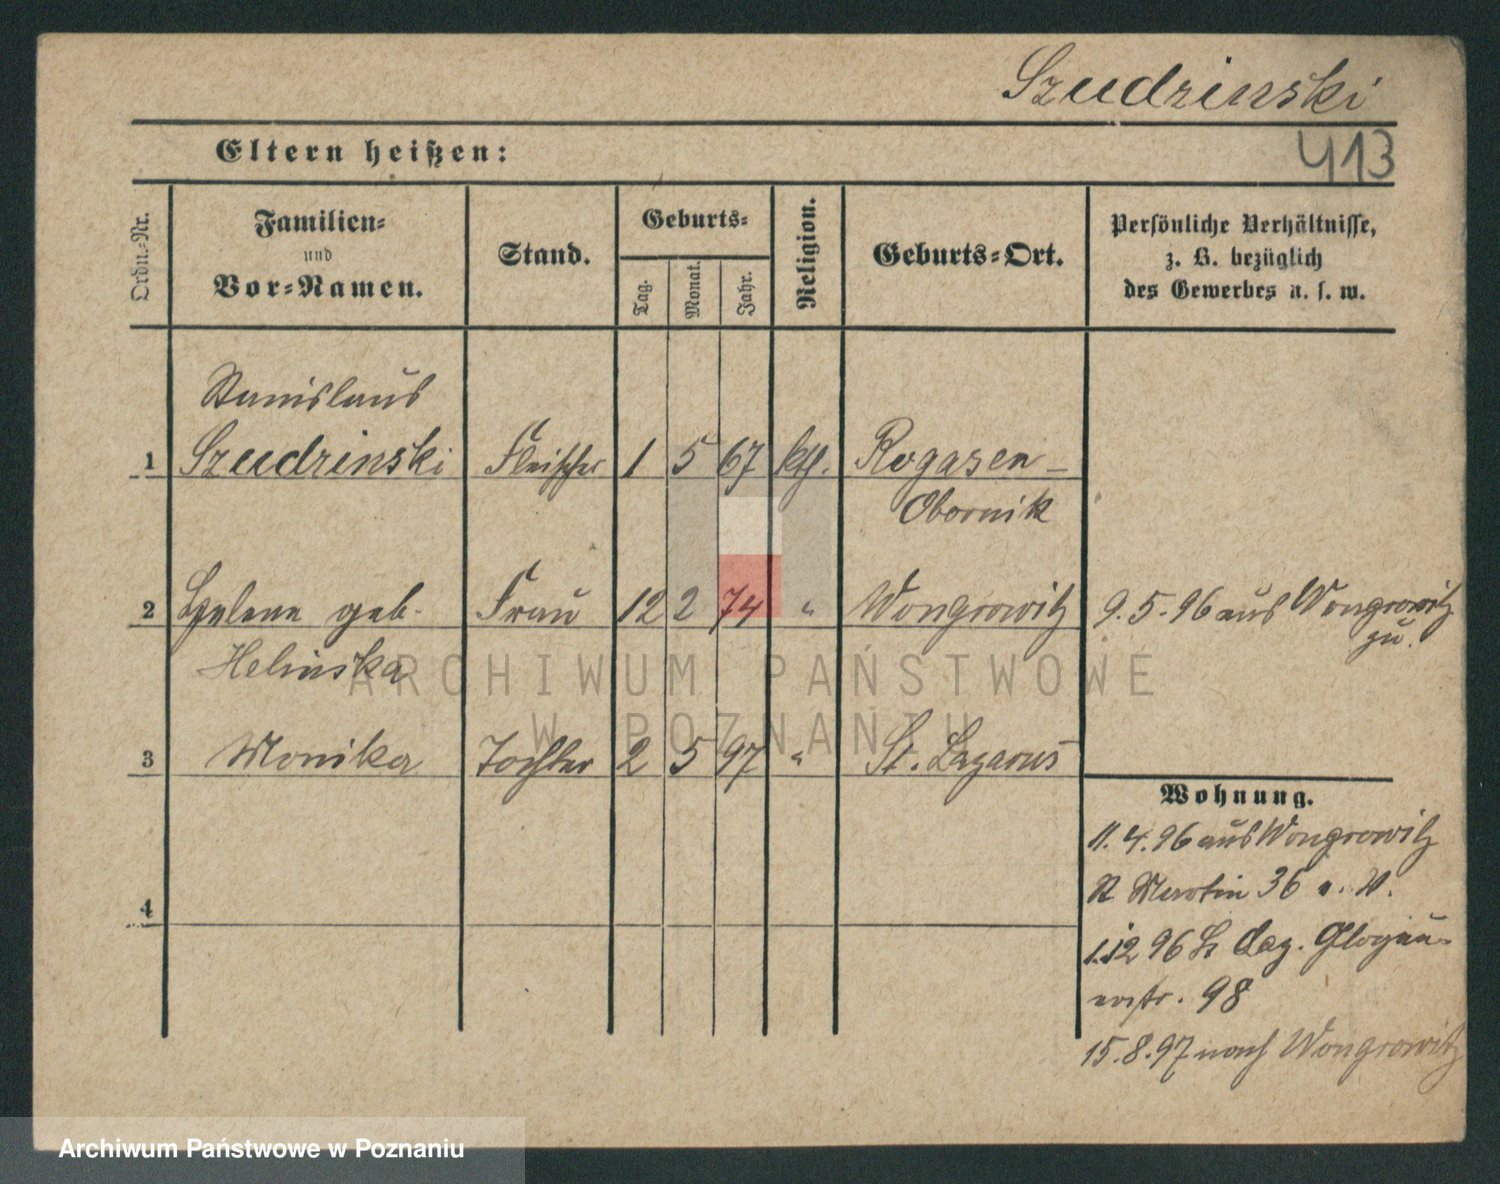 Szudzinski
413
Eltern heißen:
Ordn.-Nr.
Familien-
und
Vor-Namen.
Stand.
Geburts-
Tag.
Monat.
Jahr.
Religion.
Geburts-Ort.
Persönliche Verhältnisse,
z. B. bezüglich
des Gewerbes u. s. w.
Stanislaus
1 Szudzinski Fleischer 1 5 67 kth. Rogasen-
Obornik
2 Helene geb. Frau 12 2 74 " Wongrowitz 9. 5. 96 aus Wongrowitz
zu.
Helinska
3 Monika Tochter 2 5 97 " St. Lazarus
Wohnung.
11. 4. 96 aus Wongrowitz
St Martin 36
4
1.12 96 Laz. Glogau-
erstr. 98
15. 8. 97 nach Wongrowitz
ARCHIWUM PAŃSTWOWE
W POZNANIU
Archiwum Państwowe w Poznaniu